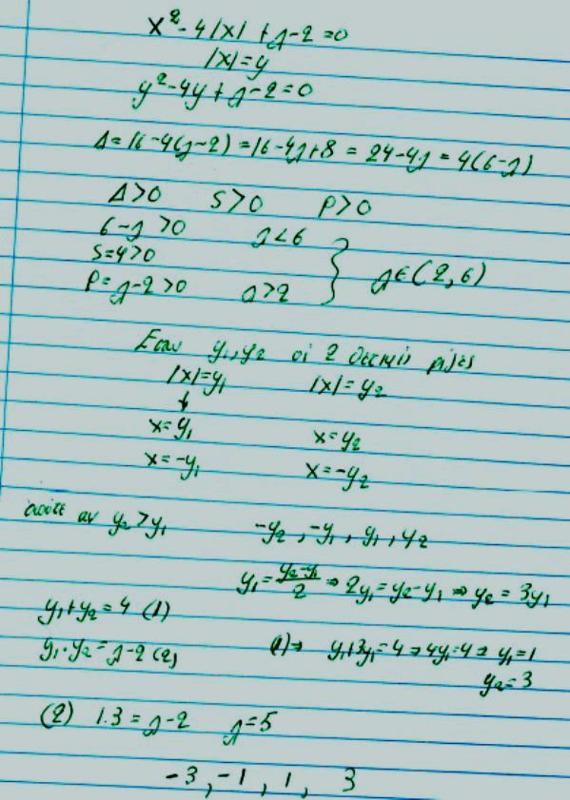 x² - 4|x| + λ - 2 = 0
|x| = y
y² - 4y + λ - 2 = 0
Δ = 16 - 4(λ - 2) = 16 - 4λ + 8 = 24 - 4λ = 4(6 - λ)
Δ > 0 S > 0 P > 0
6 - λ > 0 λ < 6
S = 4 > 0
P = λ - 2 > 0 λ > 2 } λ ∈ (2, 6)
Εστω y₁, y₂ οι 2 θετικές ρίζες
|x| = y₁ |x| = y₂
↓
x = y₁ x = y₂
x = -y₁ x = -y₂
αν y₂ > y₁ -y₂, -y₁, y₁, y₂
y₁ = (y₂ - y₁)/2 ⇒ 2y₁ = y₂ - y₁ ⇒ y₂ = 3y₁
y₁ + y₂ = 4 (1)
y₁ · y₂ = λ - 2 (2) (1) ⇒ y₁ + 3y₁ = 4 ⇒ 4y₁ = 4 ⇒ y₁ = 1
y₂ = 3
(2) 1·3 = λ - 2 λ = 5
-3, -1, 1, 3